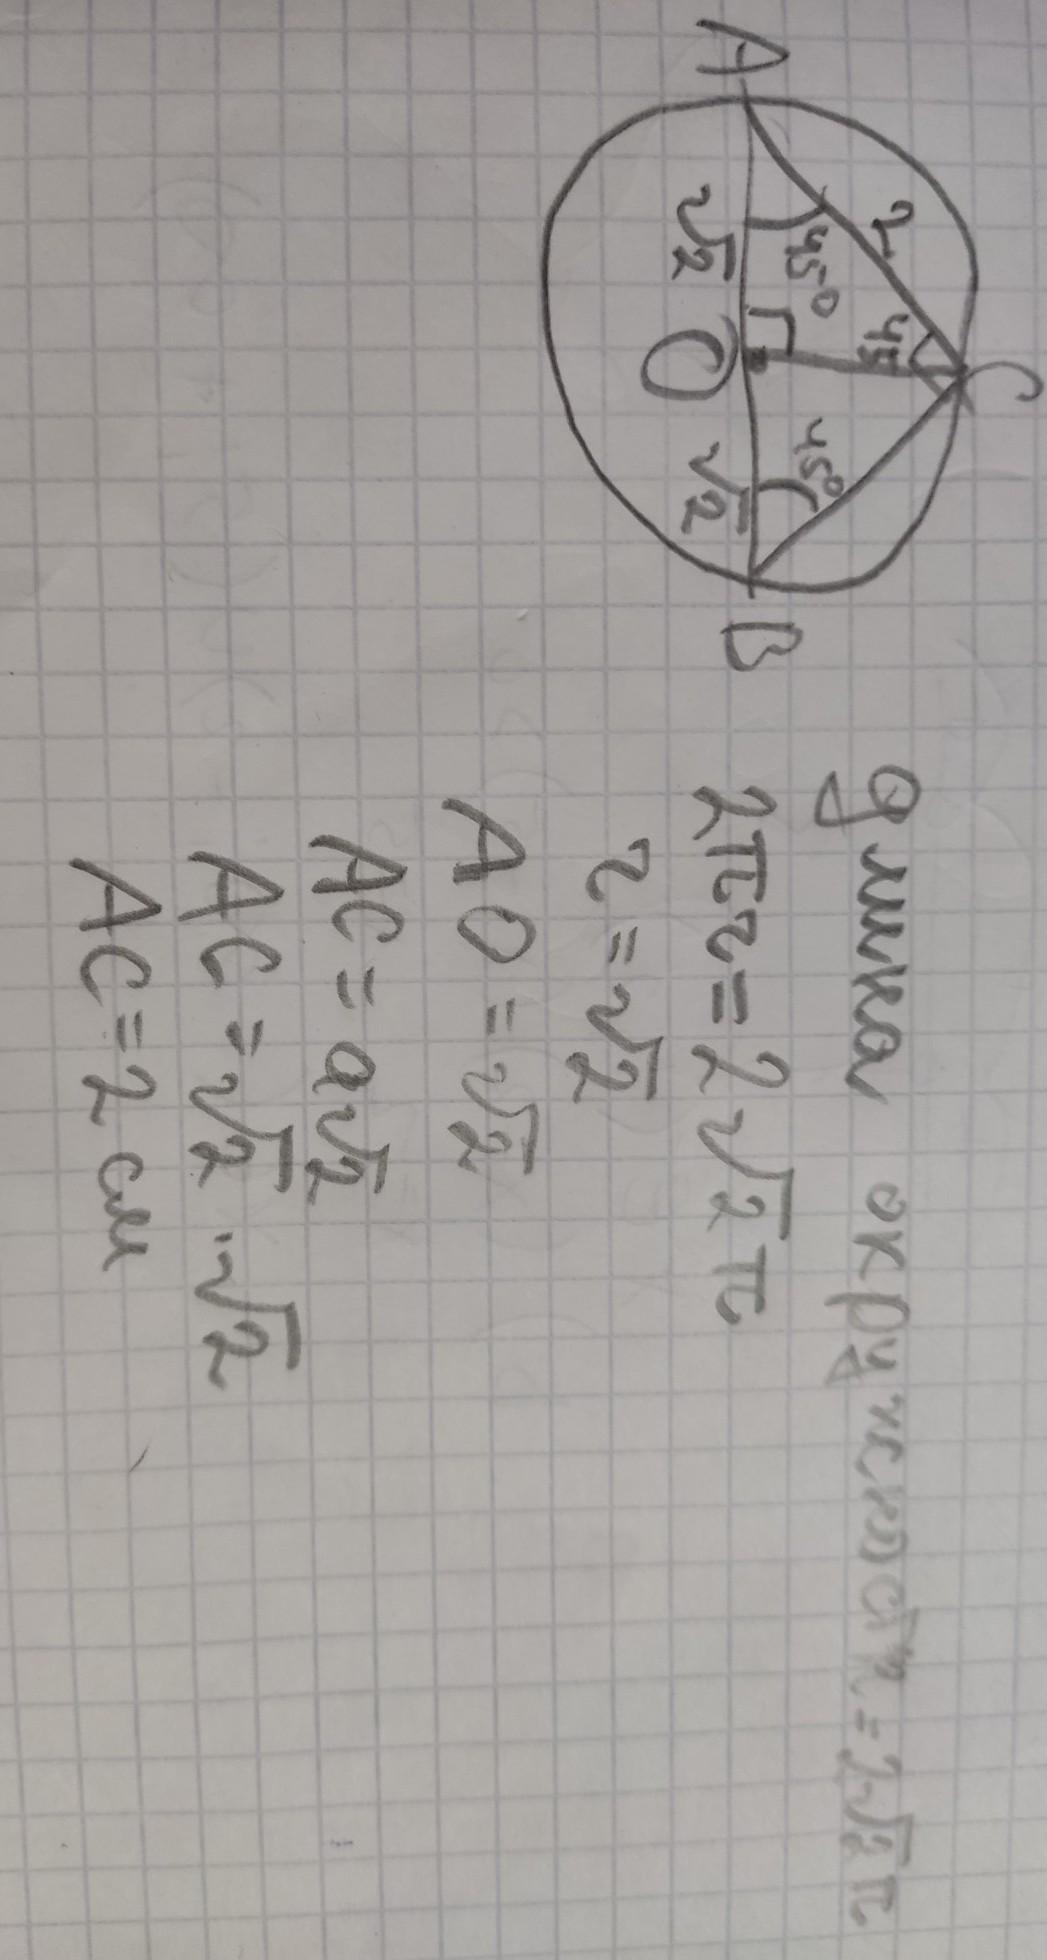 C
A
B
O
2
45
45°
45°
√2
√2
длина окружности = 2√2π
2πr = 2√2π
r = √2
AO = √2
AC = a√2
AC = √2 · √2
AC = 2 см